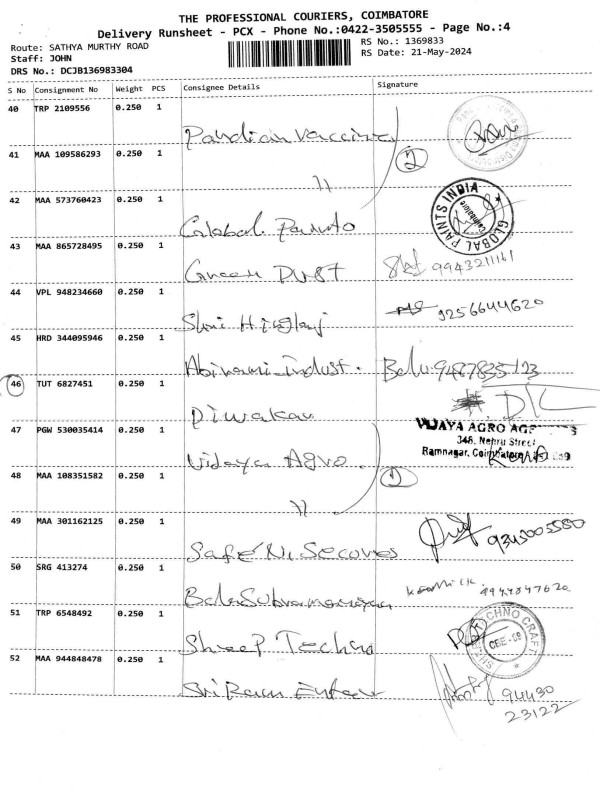 THE PROFESSIONAL COURIERS, COIMBATORE
Delivery Runsheet - PCX - Phone No.:0422-3505555 - Page No.:4
Route: SATHYA MURTHY ROAD
RS No.: 1369833
Staff: JOHN
RS Date: 21-May-2024
DRS No.: DCJB136983304
S No Consignment No Weight PCS Consignee Details Signature
40 TRP 2109556 0.250 1
Pandian Vaccine
41 MAA 109586293 0.250 1
2
42 MAA 573760423 0.250 1
GLOBAL PAINTS INDIA
Coimbatore
Global Paints
43 MAA 865728495 0.250 1
Green Dust 9943211161
44 VPL 948234660 0.250 1
Shri Hinglaj 9256644620
45 HRD 344095946 0.250 1
Abirami Indust. Balu 9487835123
46 TUT 6827451 0.250 1
Diwakar
47 PGW 530035414 0.250 1
VIJAYA AGRO
348, Nehru Street
Ramnagar, Coimbatore
Vijaya Agro
48 MAA 108351582 0.250 1
49 MAA 301162125 0.250 1
Safe N Secures 9345005550
50 SRG 413274 0.250 1
Balasubramaniyan
51 TRP 6548492 0.250 1
TECHNO CRAFT
CBE - 09
SHREE
Shree Techno
52 MAA 944848478 0.250 1
Sri Ram 94430
23122